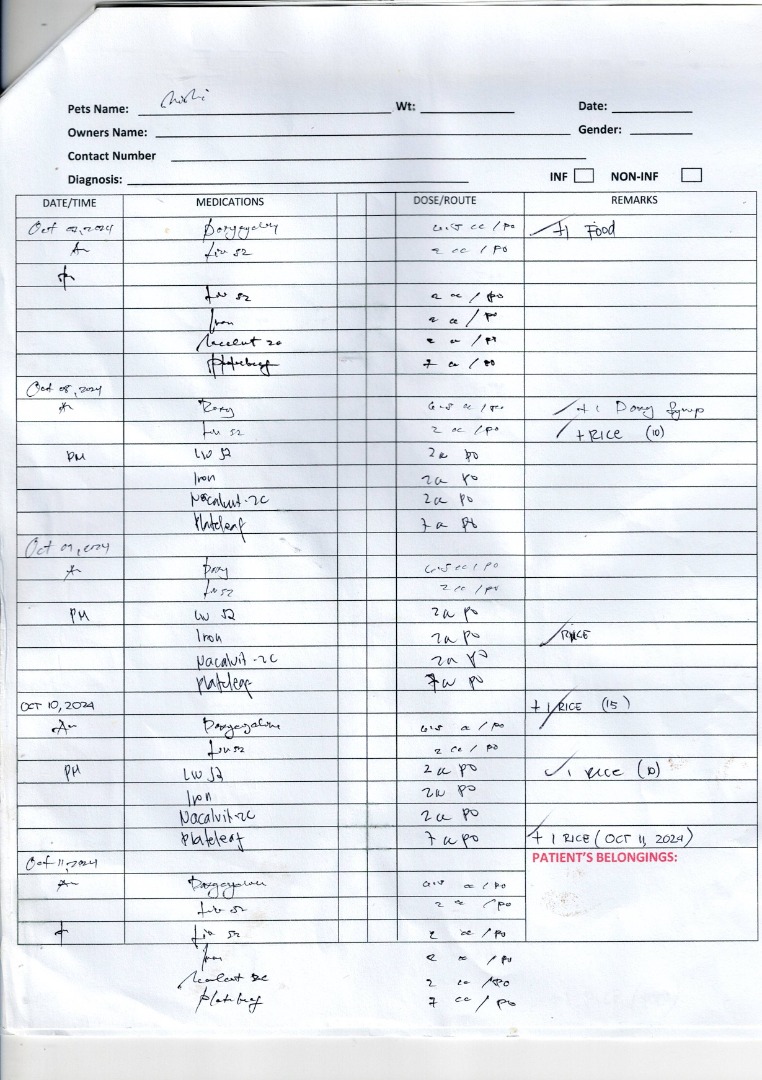 Pets Name: Wt: Date:
Owners Name: Gender:
Contact Number
Diagnosis: INF NON-INF
DATE/TIME MEDICATIONS DOSE/ROUTE REMARKS
Oct 2024 cc / po +1 Food
Liv 52 2 cc / po
Liv 52 2 cc / po
Iron 2 cc / po
2 cc / po
7 cc / po
Oct 08, 2024
Doxy cc / po + 1 Doxy Syrup
Liv 52 2 cc / po + RICE (10)
PM Liv 52 2cc po
Iron 2cc po
Nacalvit-2C 2cc po
Plateleaf 7cc po
Oct 09, 2024
Doxy cc / po
Liv 52 2 cc / po
PM Liv 52 2cc po
Iron 2cc po RICE
Nacalvit-2C 2cc po
Plateleaf 7cc po
OCT 10, 2024 + 1 RICE (15)
cc / po
Liv 52 2 cc / po
PM Liv 52 2cc po 1 RICE (10)
Iron 2cc po
Nacalvit-2C 2cc po
Plateleaf 7cc po + 1 RICE (OCT 11, 2024)
Oct 11, 2024 PATIENT'S BELONGINGS:
cc / po
Liv 52 2 cc / po
Liv 52 2 cc / po
Iron 2 cc / po
2 cc / po
7 cc / po